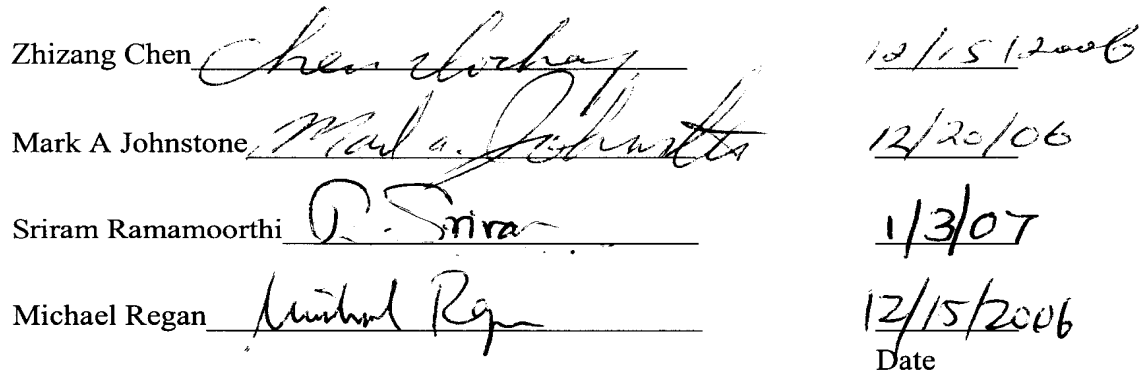 Zhizang Chen Chen 12/15/2006
Mark A Johnstone Mark A. Johnstone 12/20/06
Sriram Ramamoorthi R. Sriram 1/3/07
Michael Regan Michael Regan 12/15/2006
Date